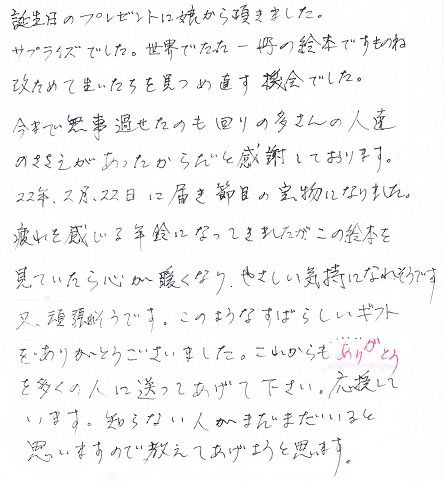 誕生日のプレゼントに娘から頂きました。
サプライズでした。世界でたった一冊の絵本ですものね
改ためて生いたちを見つめ直す機会でした。
今まで無事過せたのも回りの多さんの人達
のささえがあったからだと感謝しております。
22年、2月、22日に届き節目の宝物になりました。
疲れを感じる年齢になってきましたがこの絵本を
見ていたら心が暖くなり、やさしい気持になれそうです
又、頑張れそうです。このようなすばらしいギフト
をありがとうございました。これからもありがとう
を多くの人に送ってあげて下さい。応援して
います。知らない人がまだまだいると
思いますので教えてあげようと思います。